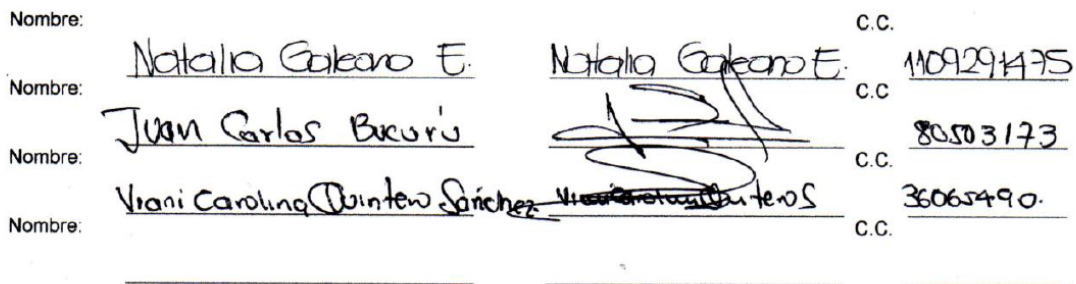 Nombre: C.C.
Natalia Galeano E. Natalia Galeano E. 1109291475
Nombre: C.C
Juan Carlos Bucurú 80503173
Nombre: C.C.
Viani Carolina Quintero Sánchez Viani Carolina Quintero S 36065490.
Nombre: C.C.